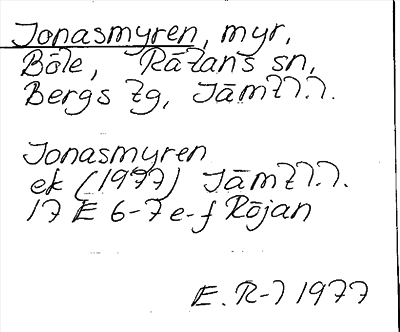 Jonasmyren, myr,
Böle, Rätans sn,
Bergs tg, Jämtl.
Jonasmyren
ek (1977) Jämtl.
17 E 6-7 e-f Röjan
E. R-l 1977